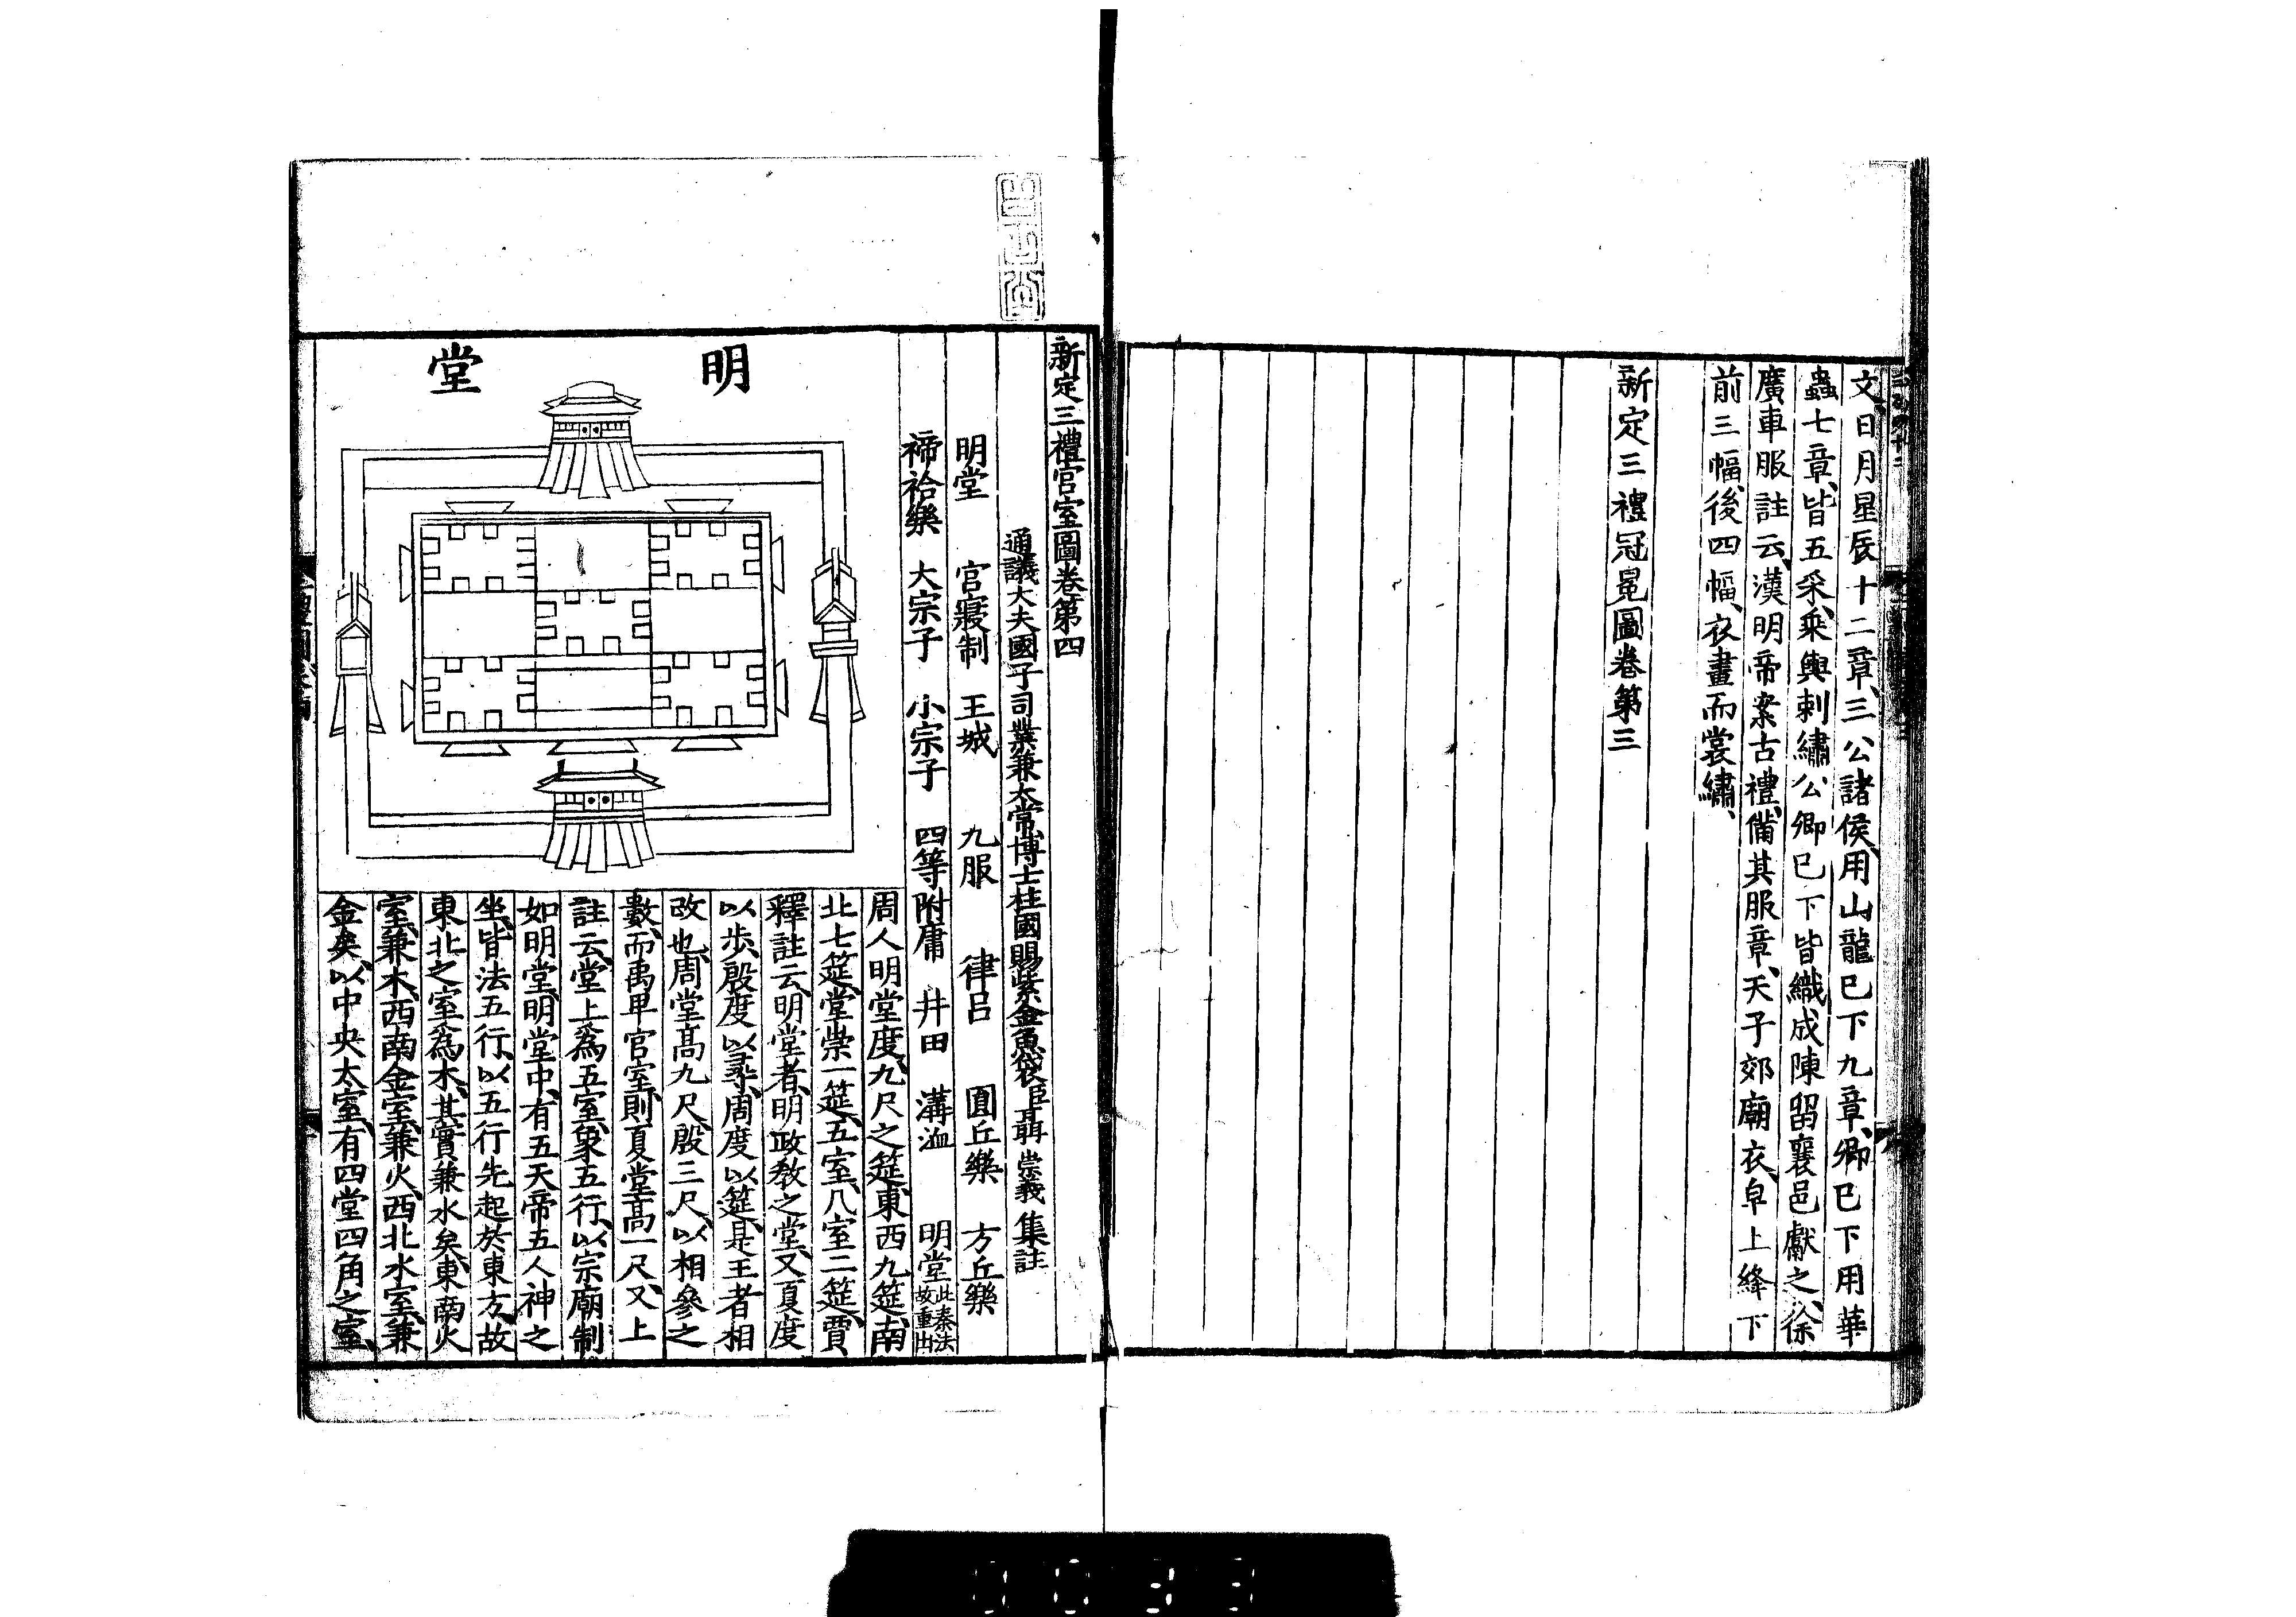 文日月星辰十二章三公諸侯用山龍已下九章卿已下用華
蟲七章皆五采乘輿刺繡公卿已下皆織成陳留襄邑獻之徐
廣車服註云漢明帝案古禮備其服章天子郊廟衣皁上絳下
前三幅後四幅衣畫而裳繡
新定三禮冠冕圖卷第三
新定三禮宮室圖卷第四
通議大夫國子司業兼太常博士柱國賜紫金魚袋臣聶崇義集註
明堂 宮寢制 王城 九服 律呂 圓丘樂 方丘樂
禘祫樂 大宗子 小宗子 四等附庸 井田 溝洫 明堂此秦法故重出
明堂
周人明堂度九尺之筵東西九筵南
北七筵堂崇一筵五室八室二筵賈
釋註云明堂者明政教之堂又夏度
以步殷度以尋周度以筵是王者相
改也周堂高九尺殷三尺以相參之
數而禹卑宮室則夏堂高一尺又上
註云堂上為五室象五行以宗廟制
如明堂明堂中有五天帝五人神之
坐皆法五行以五行先起於東方故
東北之室為木其實兼水矣東南火
室兼木西南金室兼火西北水室兼
金矣以中央太室有四堂四角之室